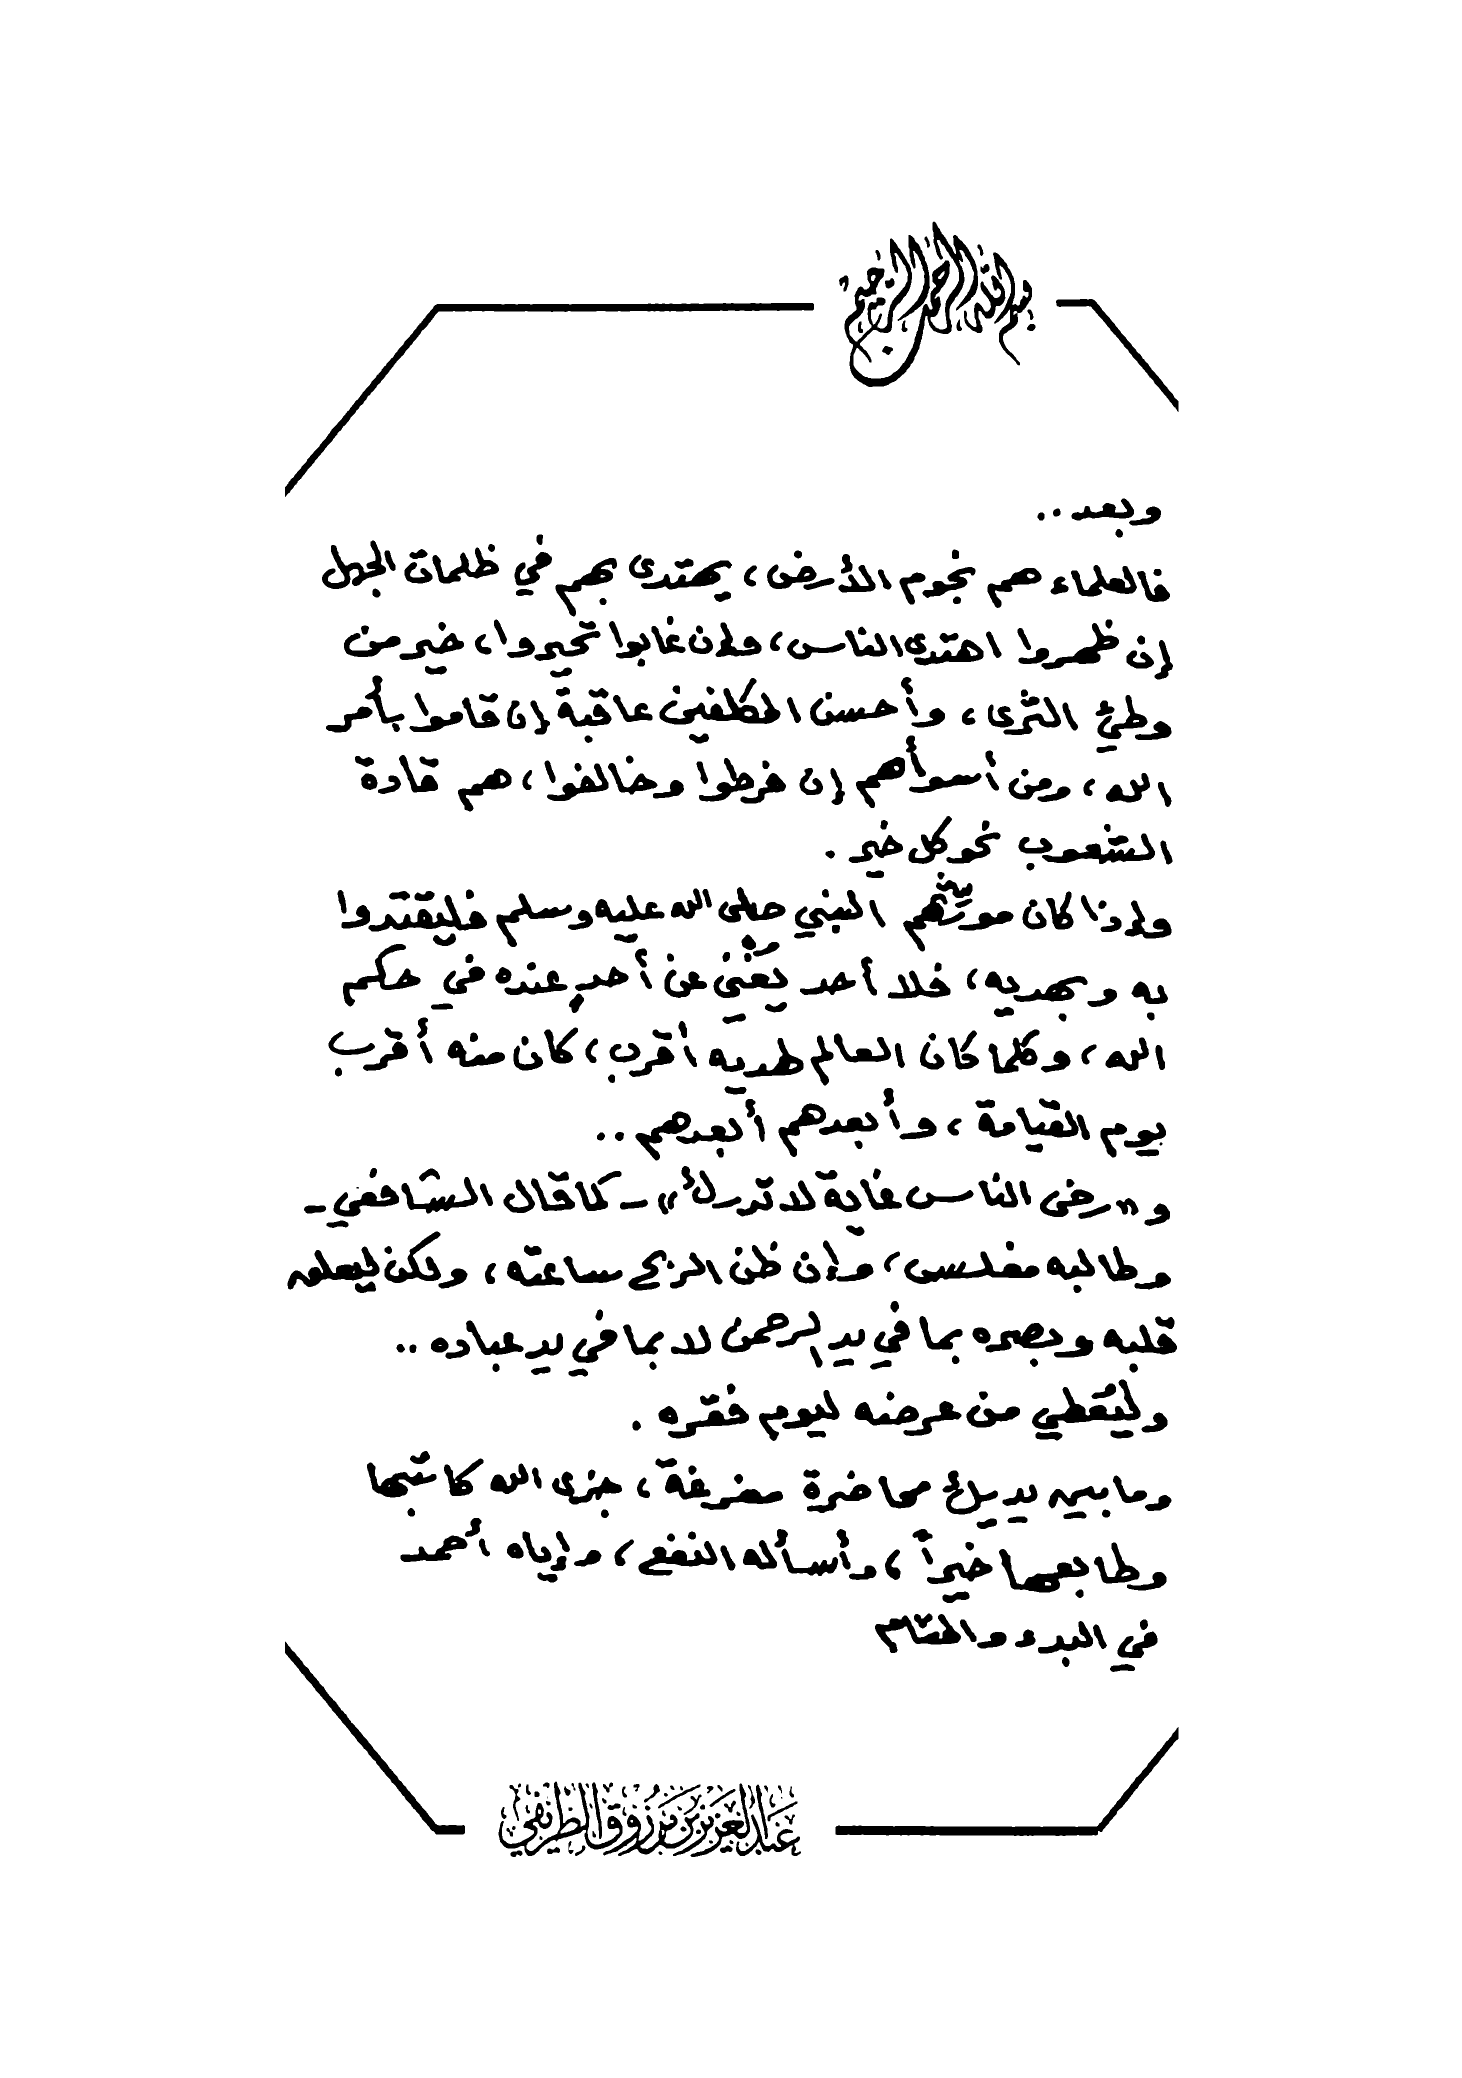 بسم الله الرحمن الرحيم
وبعد..
فالعلماء هم نجوم الأرض، يهتدى بهم في ظلمات الجهل
إن ظهروا اهتدى الناس، وإن غابوا تحيروا، خير من
وطئ الثرى، وأحسن المكلفين عاقبة إن قاموا بأمر
الله، ومن أسوأهم إن فرطوا وخالفوا، هم قادة
الشعوب نحو كل خير.
وإذا كان مورثهم النبي صلى الله عليه وسلم فليقتدوا
به وبهديه، فلا أحد يغني عن أحدٍ عنده في حكم
الله، وكلما كان العالم لهديه أقرب، كان منه أقرب
يوم القيامة، وأبعدهم أبعدهم..
و«رضى الناس غاية لا تدرك» - كما قال الشافعي -
وطالبه مفلس، وإن ظن الربح ساعته، ولكن ليعلق
قلبه وبصره بما في يد الرحمن لا بما في يد عباده..
وليُعطي من عرضه ليوم فقره.
وما بين يديك محاضرة مفرغة، جزى الله كاتبها
وطابعها خيراً، وأسأله النفع، وإياه أحمد
في البدء والختام
عبد العزيز بن مرزوق الطريفي